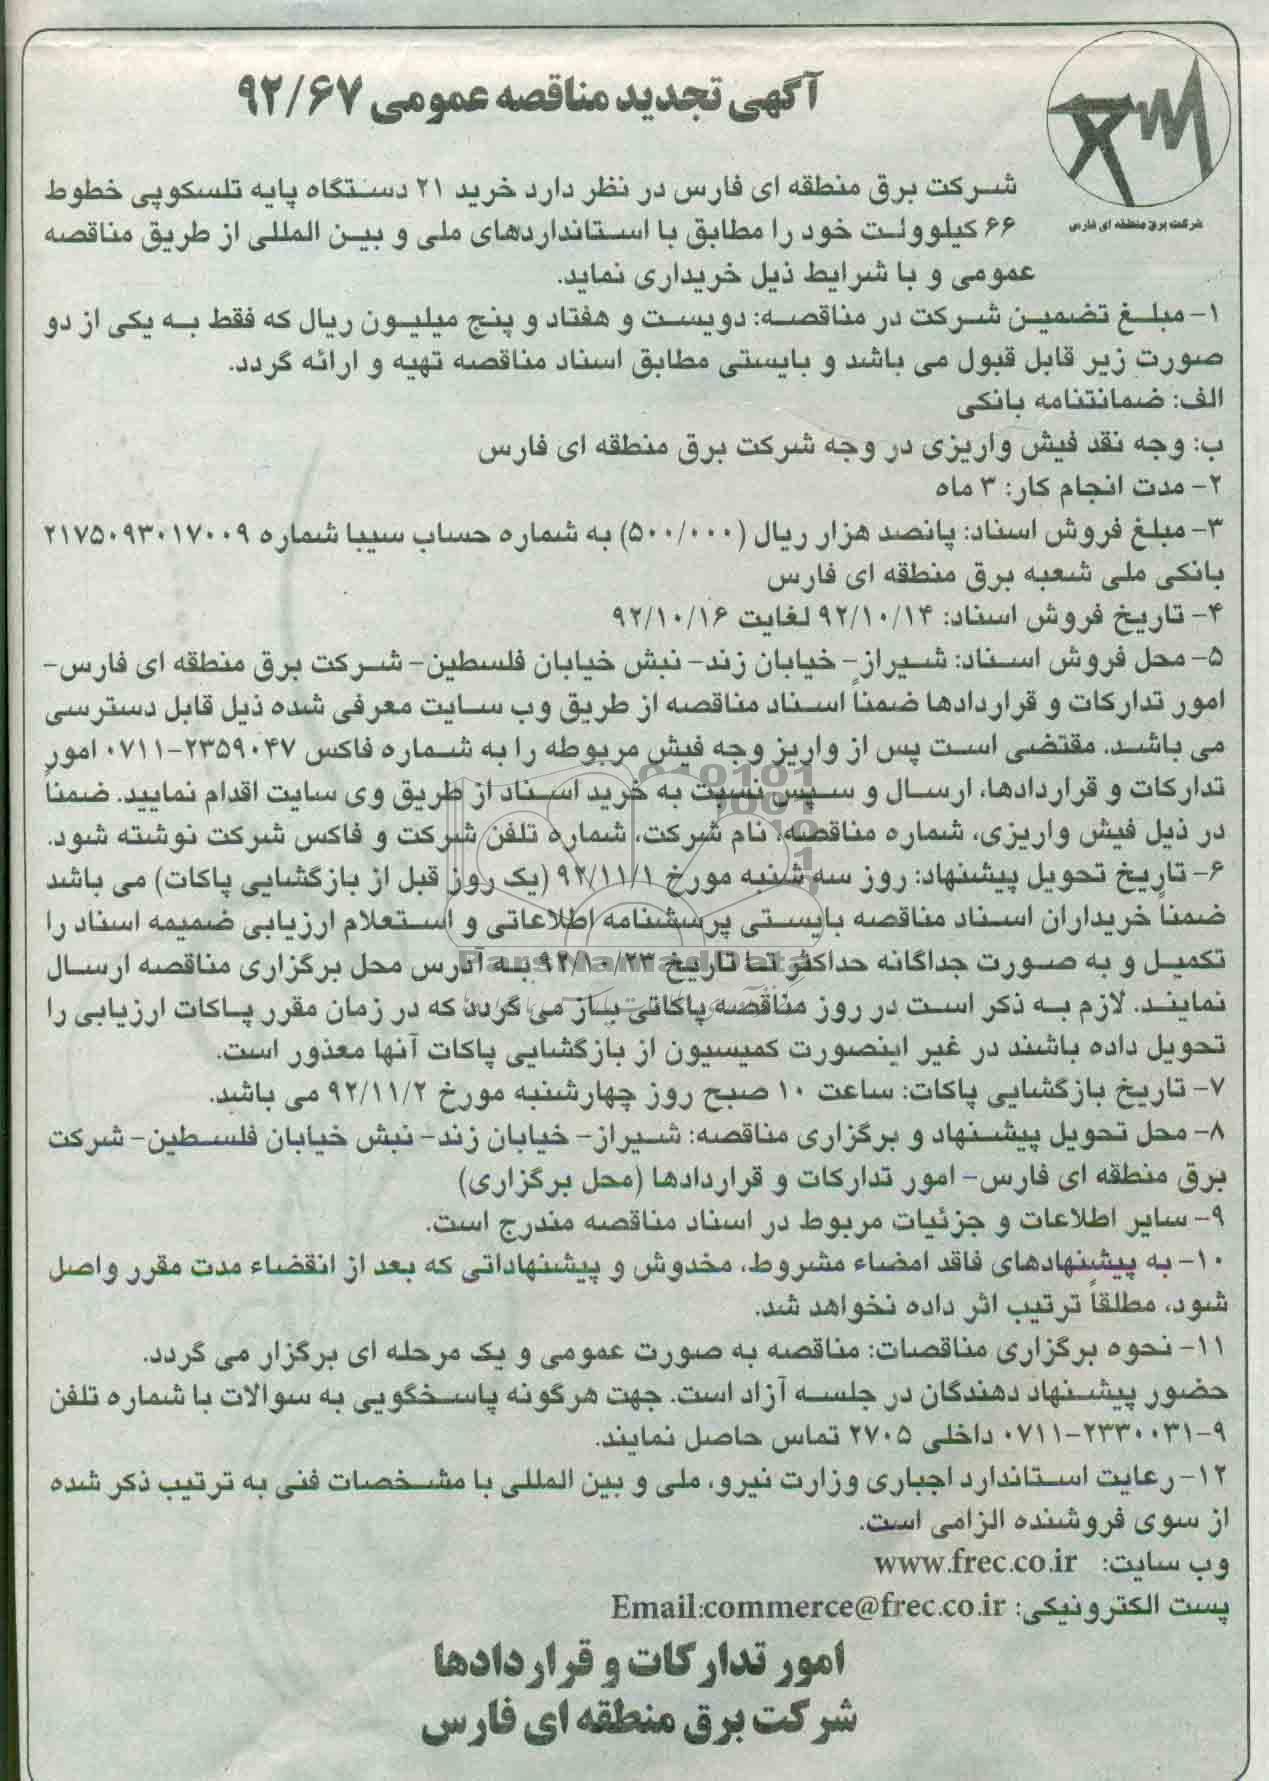 آگهی تجدید مناقصه عمومی ۹۲/۶۷
شرکت برق منطقه ای فارس
شرکت برق منطقه ای فارس در نظر دارد خرید ۲۱ دستگاه پایه تلسکوپی خطوط
۶۶ کیلوولت خود را مطابق با استانداردهای ملی و بین المللی از طریق مناقصه
عمومی و با شرایط ذیل خریداری نماید.
۱- مبلغ تضمین شرکت در مناقصه: دویست و هفتاد و پنج میلیون ریال که فقط به یکی از دو
صورت زیر قابل قبول می باشد و بایستی مطابق اسناد مناقصه تهیه و ارائه گردد.
الف: ضمانتنامه بانکی
ب: وجه نقد فیش واریزی در وجه شرکت برق منطقه ای فارس
۲- مدت انجام کار: ۳ ماه
۳- مبلغ فروش اسناد: پانصد هزار ریال (۵۰۰/۰۰۰) به شماره حساب سیبا شماره ۲۱۷۵۰۹۳۰۱۷۰۰۹
بانکی ملی شعبه برق منطقه ای فارس
۴- تاریخ فروش اسناد: ۹۲/۱۰/۱۴ لغایت ۹۲/۱۰/۱۶
۵- محل فروش اسناد: شیراز- خیابان زند- نبش خیابان فلسطین- شرکت برق منطقه ای فارس-
امور تدارکات و قراردادها ضمناً اسناد مناقصه از طریق وب سایت معرفی شده ذیل قابل دسترسی
می باشد. مقتضی است پس از واریز وجه فیش مربوطه را به شماره فاکس ۲۳۵۹۰۴۷-۰۷۱۱ امور
تدارکات و قراردادها، ارسال و سپس نسبت به خرید اسناد از طریق وی سایت اقدام نمایید. ضمناً
در ذیل فیش واریزی، شماره مناقصه، نام شرکت، شماره تلفن شرکت و فاکس شرکت نوشته شود.
۶- تاریخ تحویل پیشنهاد: روز سه شنبه مورخ ۹۲/۱۱/۱ (یک روز قبل از بازگشایی پاکات) می باشد
ضمناً خریداران اسناد مناقصه بایستی پرسشنامه اطلاعاتی و استعلام ارزیابی ضمیمه اسناد را
تکمیل و به صورت جداگانه حداکثر تا تاریخ ۹۲/۱۰/۲۳ به آدرس محل برگزاری مناقصه ارسال
نمایند. لازم به ذکر است در روز مناقصه پاکاتی باز می گردد که در زمان مقرر پاکات ارزیابی را
تحویل داده باشند در غیر اینصورت کمیسیون از بازگشایی پاکات آنها معذور است.
۷- تاریخ بازگشایی پاکات: ساعت ۱۰ صبح روز چهارشنبه مورخ ۹۲/۱۱/۲ می باشد.
۸- محل تحویل پیشنهاد و برگزاری مناقصه: شیراز- خیابان زند- نبش خیابان فلسطین- شرکت
برق منطقه ای فارس- امور تدارکات و قراردادها (محل برگزاری)
۹- سایر اطلاعات و جزئیات مربوط در اسناد مناقصه مندرج است.
۱۰- به پیشنهادهای فاقد امضاء مشروط، مخدوش و پیشنهاداتی که بعد از انقضاء مدت مقرر واصل
شود، مطلقاً ترتیب اثر داده نخواهد شد.
۱۱- نحوه برگزاری مناقصات: مناقصه به صورت عمومی و یک مرحله ای برگزار می گردد.
حضور پیشنهاد دهندگان در جلسه آزاد است. جهت هرگونه پاسخگویی به سوالات با شماره تلفن
۹-۲۳۳۰۰۳۱-۰۷۱۱ داخلی ۲۷۰۵ تماس حاصل نمایند.
۱۲- رعایت استاندارد اجباری وزارت نیرو، ملی و بین المللی با مشخصات فنی به ترتیب ذکر شده
از سوی فروشنده الزامی است.
وب سایت: www.frec.co.ir
پست الکترونیکی: Email:commerce@frec.co.ir
امور تدارکات و قراردادها
شرکت برق منطقه ای فارس
ParsNamadData